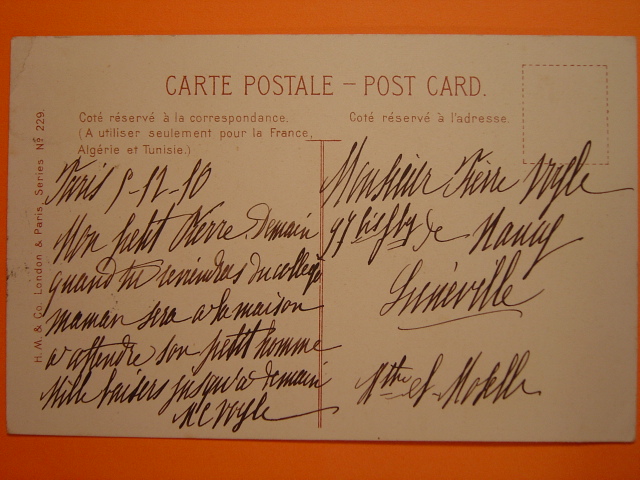 CARTE POSTALE – POST CARD.
Coté réservé à la correspondance.
(A utiliser seulement pour la France,
Algérie et Tunisie.)
Coté réservé à l'adresse.
H.M. & Co. London & Paris, Series Nº 229.
Paris 5-12-10
Mon petit Pierre. Demain
quand tu reviendras du collège
maman sera a la maison
a attendre son petit homme
Mille baisers jusqu'a demain
Monsieur Pierre Vogle
97 bis fbg de Nancy
Lunéville
Mthe et Moselle